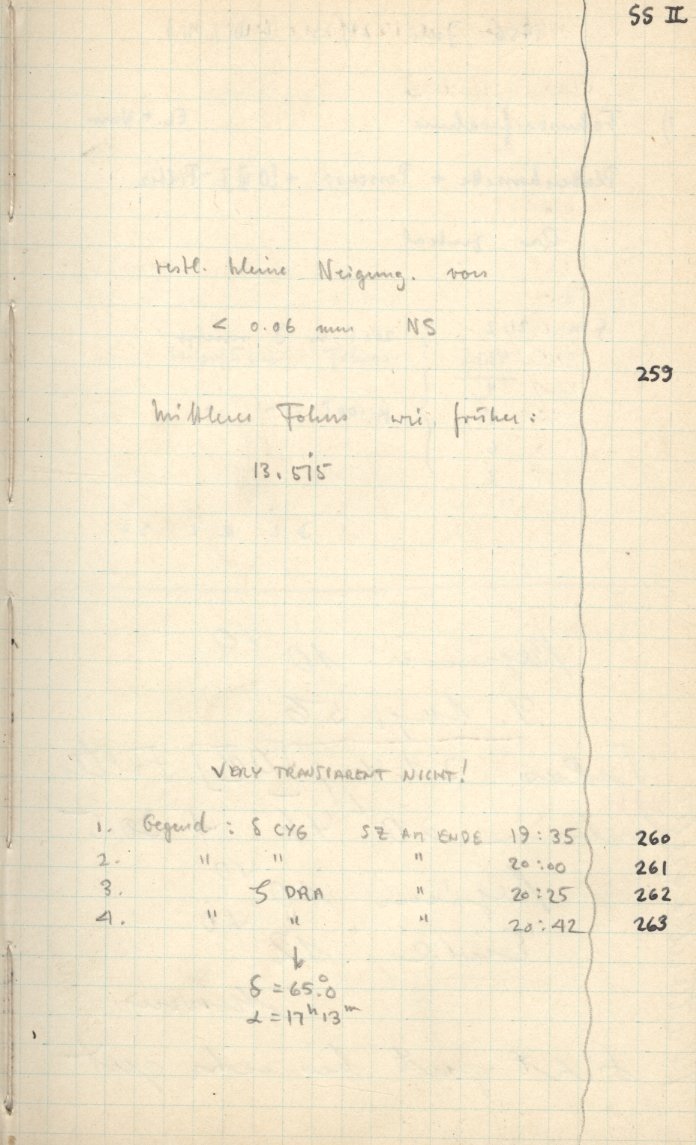 SS II
restl. kleine Neigung. von
< 0.06 mm NS
259
Mittlerer Fokus wie früher:
13.575
VERY TRANSPARENT NICHT!
1. Gegend : δ CYG SZ AM ENDE 19:35 260
2. " " " 20:00 261
3. ζ DRA " 20:25 262
4. " " " 20:42 263
↓
δ = 65.°0
α = 17ʰ 13ᵐ